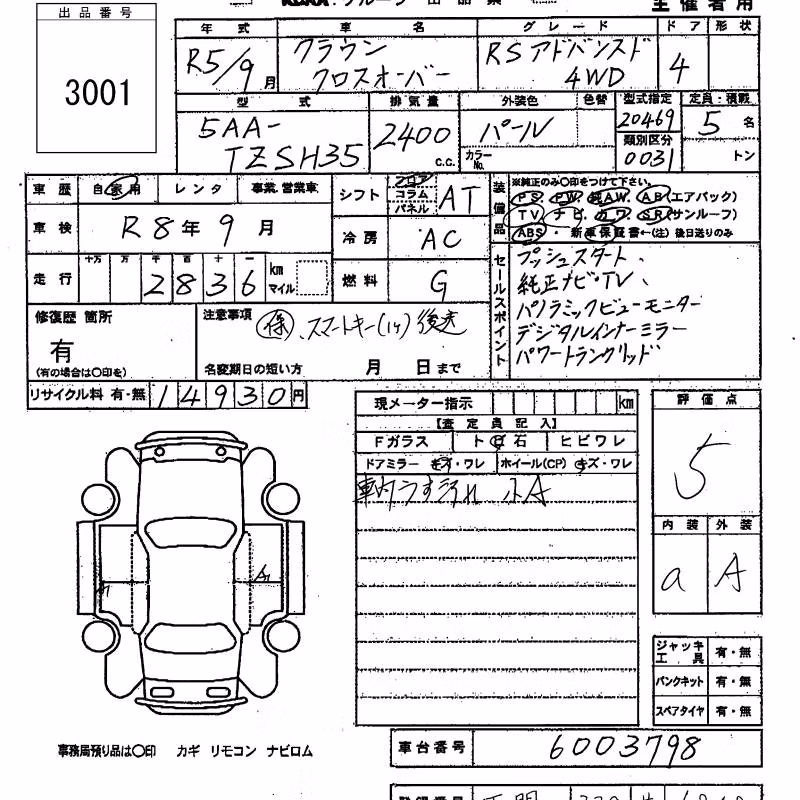 出品番号
3001
年式 車名 グレード ドア 形状
R5/9月 クラウン クロスオーバー RSアドバンスド 4WD 4
型式 排気量 外装色 色替 型式指定 定員・積載
5AA-TZSH35 2400 c.c. パール カラーNo. 20469 5名
類別区分 0031 トン
車歴 自家用 レンタ 事業.営業車
シフト フロア コラム パネル AT
装備品 ※純正のみ〇印をつけて下さい。
PS. PW. 純AW. AB(エアバック)
TV ナビ. カワ. SR(サンルーフ)
ABS・新車保証書←(注) 後日送りのみ
車検 R8年9月
冷房 AC
走行 十万 万 千 百 十 一
2836 km マイル
燃料 G
セールスポイント
プッシュスタート、
純正ナビ・TV、
パノラミックビューモニター
デジタルインナーミラー
パワートランクリッド
修復歴 箇所
有
(有の場合は〇印を)
注意事項 保、スマートキー(1ケ)後送
名変期日の短い方 月 日まで
リサイクル料 有・無 14930円
現メーター指示 km
【査定員記入】
Fガラス トビ石 ヒビワレ
ドアミラー キズ・ワレ ホイール(CP) キズ・ワレ
車内うす汚れ 小A
評価点
5
内装 外装
a A
A1
ジャッキ工具 有・無
パンクキット 有・無
スペアタイヤ 有・無
事務局預り品は〇印 カギ リモコン ナビロム
車台番号 6003798